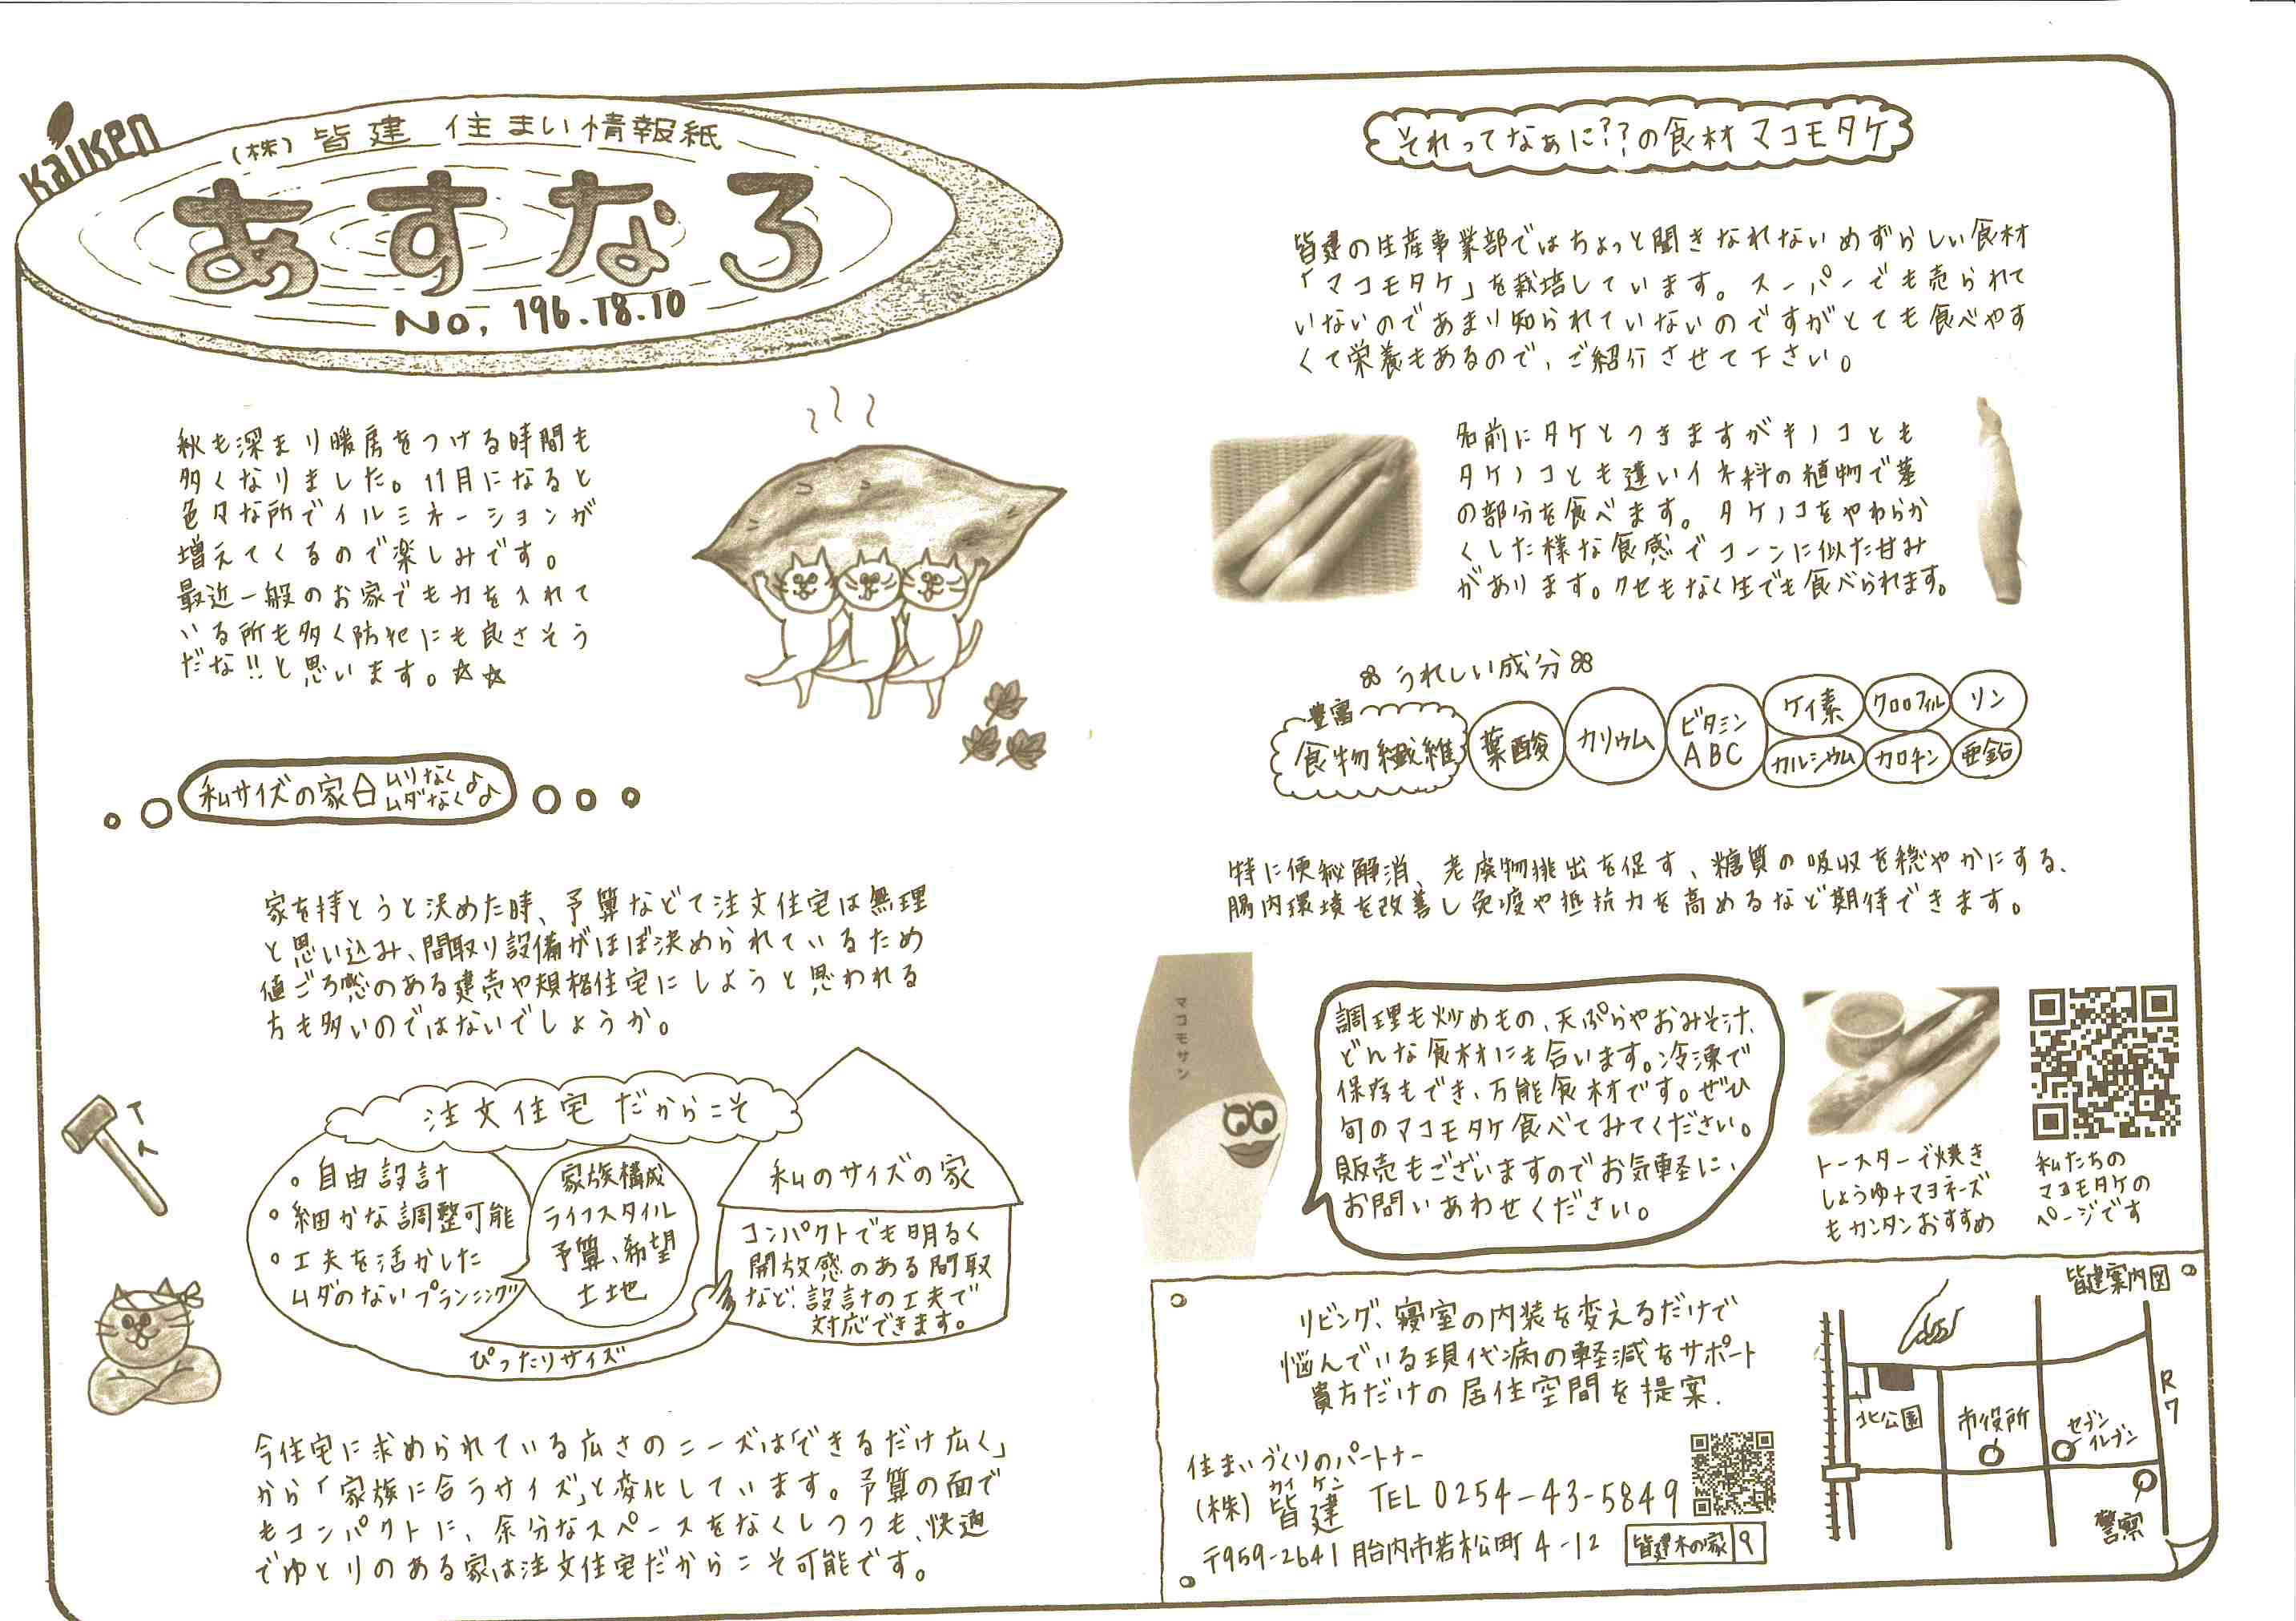 Kaiken
(株)皆建 住まい情報紙
あすなろ
No, 196.18.10
秋も深まり暖房をつける時間も
多くなりました。11月になると
色々な所でイルミネーションが
増えてくるので楽しみです。
最近一般のお家でも力を入れて
いる所も多く防犯にも良さそう
だな!!と思います。☆☆
私サイズの家 ムリなく ムダなく♪♪
家を持とうと決めた時、予算などで注文住宅は無理
と思い込み、間取り設備がほぼ決められているため
値ごろ感のある建売や規格住宅にしようと思われる
方も多いのではないでしょうか。
注文住宅だからこそ
。自由設計
。細かな調整可能
。工夫を活かした
ムダのないプランニング
家族構成
ライフスタイル
予算、希望
土地
ぴったりサイズ
私のサイズの家
コンパクトでも明るく
開放感のある間取
など、設計の工夫で
対応できます。
今住宅に求められている広さのニーズは「できるだけ広く」
から「家族に合うサイズ」と変化しています。予算の面で
もコンパクトに、余分なスペースをなくしつつも、快適
でゆとりのある家は注文住宅だからこそ可能です。
それってなぁに??の食材 マコモタケ
皆建の生産事業部ではちょっと聞きなれないめずらしい食材
「マコモタケ」を栽培しています。スーパーでも売られて
いないのであまり知られていないのですがとても食べやす
くて栄養もあるので、ご紹介させて下さい。
名前にタケとつきますがキノコとも
タケノコとも違いイネ科の植物で茎
の部分を食べます。タケノコをやわらか
くした様な食感でコーンに似た甘み
があります。クセもなく生でも食べられます。
うれしい成分
豊富
食物繊維
葉酸
カリウム
ビタミン
ABC
ケイ素
クロロフィル
リン
カルシウム
カロチン
亜鉛
特に便秘解消、老廃物排出を促す、糖質の吸収を穏やかにする、
腸内環境を改善し免疫や抵抗力を高めるなど期待できます。
マコモサン
調理も炒めもの、天ぷらやおみそ汁、
どんな食材にも合います。冷凍で
保存もでき、万能食材です。ぜひ
旬のマコモタケ食べてみてください。
販売もございますのでお気軽に、
お問いあわせください。
トースターで焼き
しょうゆ+マヨネーズ
もカンタンおすすめ
私たちの
マコモタケの
ページです
リビング、寝室の内装を変えるだけで
悩んでいる現代病の軽減をサポート
貴方だけの居住空間を提案.
住まいづくりのパートナー
カイ ケン
(株)皆建 TEL 0254-43-5849
〒959-2641 胎内市若松町4-12
皆建木の家 9
皆建案内図
北公園
市役所
セブン
イレブン
R7
警察